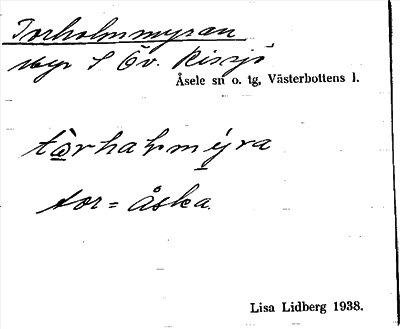 Torholmmyran
myr S Öv. Rissjö
Åsele sn o. tg, Västerbottens l.
tàrhahmýra
tor = åska.
Lisa Lidberg 1938.